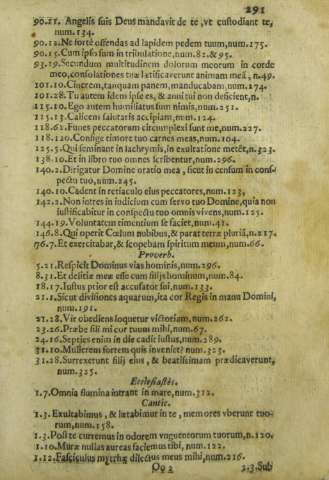 291
90.11. Angelis suis Deus mandavit de te, vt custodiant te,
num.134.
90.12. Ne forte offendas ad lapidem pedem tuum, num.175.
90.15. Cum ipso sum in tribulatione, num.82.& 95.
93.19. Secundum multitudinem dolorum meorum in corde
meo, consolationes tuæ lætificaverunt animam meã, n.49.
101.10. Cinerem, tanquam panem, manducabam, num.174.
101.28. Tu autem idem ipse es, & anni tui non deficient, n.
115.10. Ego autem humiliatus sum nimis, num.251.
115.13. Calicem salutaris accipiam, num.124.
118.61. Funes peccatorum circumplexi sunt me, num.227.
118.120. Confige timore tuo carnes meas, num.104.
125.5. Qui seminant in lachrymis, in exultatione metẽt, n.323.
138.16. Et in libro tuo omnes scribentur, num.296.
140.2. Dirigatur Domine oratio mea, sicut incensum in conspe-
ctu tuo, num.245.
140.10. Cadent in retiaculo eius peccatores, num.123,
142.2. Non intres in iudicium cum servo tuo Domine, quia non
iustificabitur in conspectu tuo omnis vivens, num.125.
144.19. Voluntatem timentium se faciet, num.41.
146.8. Qui operit Cœlum nubibus, & parat terræ pluviã, n.217.
76.7. Et exercitabar, & scopebam spiritum meum, num.66.
Proverb.
5.21. Respicit Dominus vias hominis, num.296.
8.31. Et delitiæ meæ esse cum filijs hominum, num.84.
18.17. Iustus prior est accusator sui, num.133.
21.1. Sicut divisiones aquarum, ita cor Regis in manu Domini,
num.191.
21.28. Vir obediens loquetur victoriam, num.262.
23.26. Præbe fili mi cor tuum mihi, num.67.
24.16. Septies enim in die cadit iustus, num.289.
31.10. Mulierem fortem quis inveniet? num.325.
31.28. Surrexerunt filij eius, & beatissimam prædicaverunt,
num.325.
Ecclesiastẽs.
1.7. Omnia flumina intrant in mare, num.312.
Cantic.
1.3. Exultabimus, & lætabimur in te, memores vberum tuo-
rum, num.158.
1.3. Post te curremus in odorem vnguentorum tuorum, n.120.
1.10. Muræ nullas aureas faciemus tibi, num.122.
1.12. Fasciculus myrrhæ dilectus meus mihi, num.216.
Oo 2
2.3. Sub